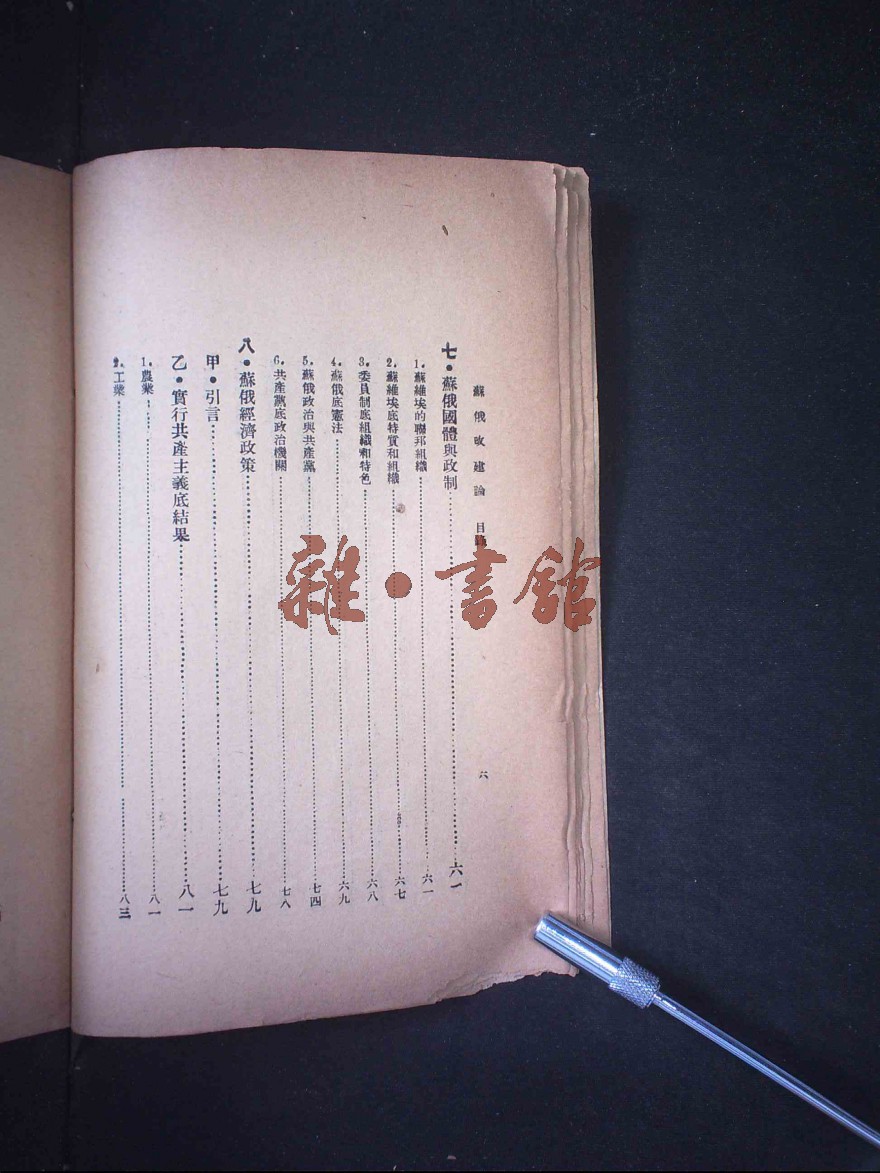 蘇俄改建論 目錄 六
七·蘇俄國體與政制……六一
1.蘇維埃的聯邦組織……六一
2.蘇維埃底特質和組織……六七
3.委員制底組織和特色……六八
4.蘇俄底憲法……六九
5.蘇俄政治與共產黨……七四
6.共產黨底政治機關……七八
八·蘇俄經濟政策……七九
甲·引言……七九
乙·實行共產主義底結果……八一
1.農業……八一
2.工業……八三
雜·書館